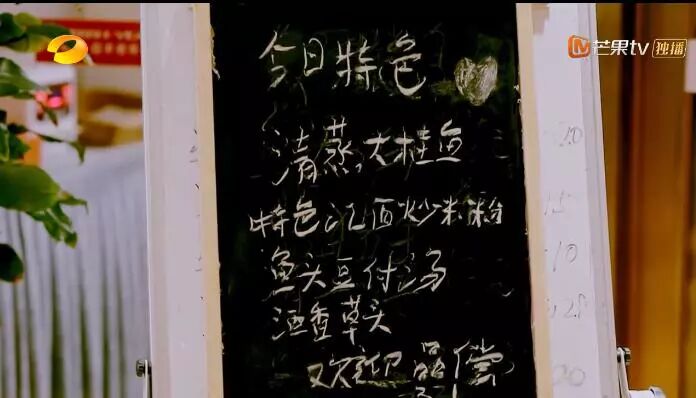 芒果tv 独播
今日特色
清蒸大桂鱼
特色江西炒米粉
鱼头豆付汤
酒香草头
欢迎品尝